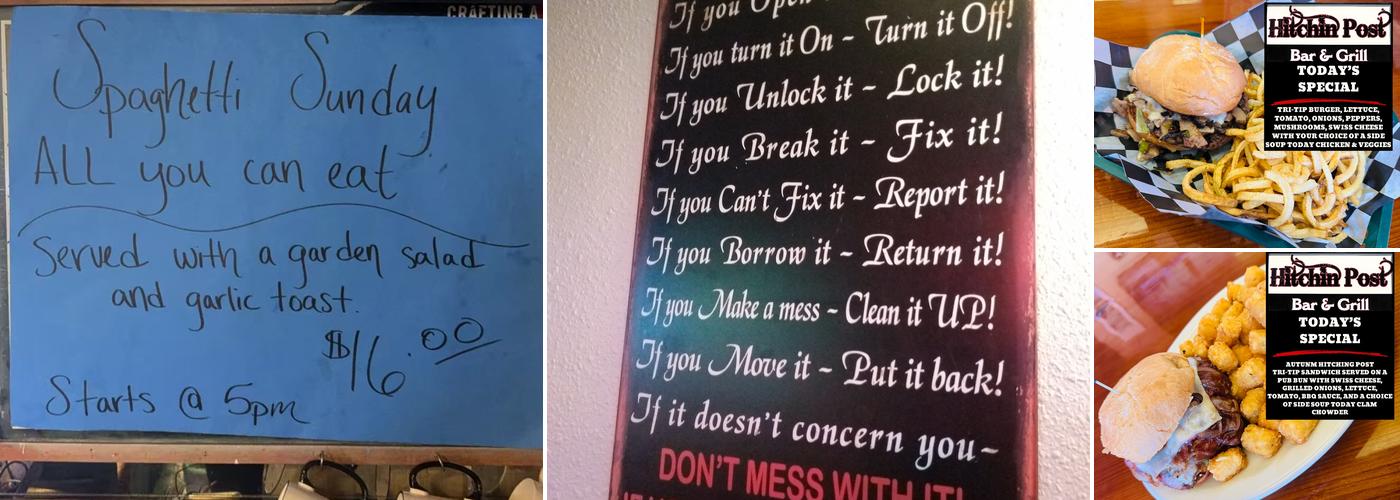 CRAFTING A
Spaghetti Sunday
ALL you can eat
Served with a garden salad
and garlic toast.
$16.00
Starts @ 5pm
If you Open
If you turn it On ~ Turn it Off!
If you Unlock it ~ Lock it!
If you Break it ~ Fix it!
If you Can't Fix it ~ Report it!
If you Borrow it ~ Return it!
If you Make a mess ~ Clean it UP!
If you Move it ~ Put it back!
If it doesn't concern you~
DON'T MESS WITH IT!
Hitchin Post
Bar & Grill
TODAY'S
SPECIAL
TRI-TIP BURGER, LETTUCE,
TOMATO, ONIONS, PEPPERS,
MUSHROOMS, SWISS CHEESE
WITH YOUR CHOICE OF A SIDE
SOUP TODAY CHICKEN & VEGGIES
Hitchin Post
Bar & Grill
TODAY'S
SPECIAL
AUTUNM HITCHING POST
TRI-TIP SANDWICH SERVED ON A
PUB BUN WITH SWISS CHEESE,
GRILLED ONIONS, LETTUCE,
TOMATO, BBQ SAUCE, AND A CHOICE
OF SIDE SOUP TODAY CLAM
CHOWDER